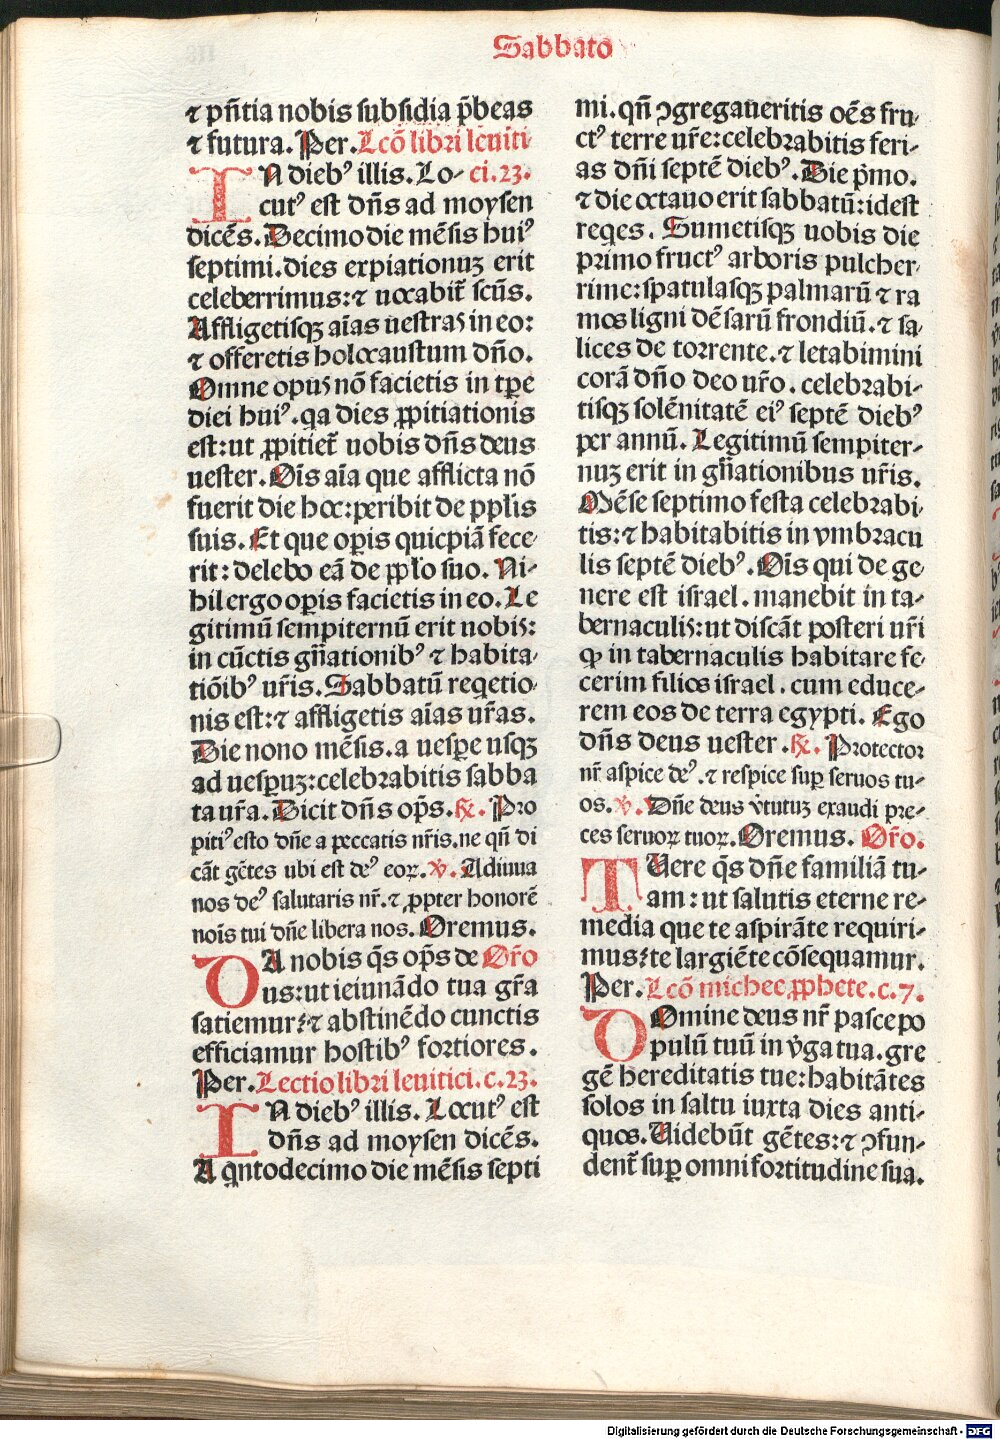 Sabbato
⁊ pñtia nobis subsidia p̄beas
⁊ futura. Per. Lcõ libri leuiti-
IN diebꝰ illis. Lo- ci. 23.
cutꝰ est dñs ad moysen
dicẽs. Decimo die mẽsis huiꝰ
septimi. dies expiationuꝫ erit
celeberrimus: ⁊ uocabit̃ scũs.
Affligetisqꝫ aĩas uestras in eo:
⁊ offeretis holocaustum dño.
Omne opus nõ facietis in tp̃e
diei huiꝰ. qa dies ꝓpitiationis
est: ut ꝓpitiet̃ uobis dñs deus
uester. Oĩs aĩa que afflicta nõ
fuerit die hoc: peribit de ppl̃is
suis. Et que oꝑis quicpiã fece-
rit: delebo eã de ppl̃o suo. Ni-
hil ergo oꝑis facietis in eo. Le
gitimũ sempiternũ erit uobis:
in cũctis gñationibꝰ ⁊ habita-
tiõibꝰ ur̃is. Sabbatũ reqetio-
nis est: ⁊ affligetis aĩas ur̃as.
Die nono mẽsis. a uesꝑe usqꝫ
ad uesꝑuꝫ: celebrabitis sabba
ta ur̃a. Dicit dñs op̃s. ℟. Pro
pitiꝰ esto dñe a peccatis nr̃is. ne qñ di
cãt gẽtes ubi est deꝰ eoꝝ. ℣. Adiuua
nos deꝰ salutaris nr̃. ⁊ ꝓpter honorẽ
noĩs tui dñe libera nos. Oremus.
DA nobis q̃s op̃s de Or̃o
us: ut ieiunãdo tua gr̃a
satiemur: ⁊ abstinẽdo cunctis
efficiamur hostibꝰ fortiores.
Per. Lectio libri leuitici. c. 23.
IN diebꝰ illis. Locutꝰ est
dñs ad moysen dicẽs.
A qntodecimo die mẽsis septi
mi. qñ ꝯgregaueritis oẽs fru-
ctꝰ terre ur̃e: celebrabitis feri-
as dñi septẽ diebꝰ. Die p̃mo.
⁊ die octauo erit sabbatũ: idest
reqes. Sumetisqꝫ uobis die
primo fructꝰ arboris pulcher-
rime: spatulasqꝫ palmarũ ⁊ ra
mos ligni dẽsarũ frondiũ. ⁊ sa-
lices de torrente. ⁊ letabimini
corã dño deo ur̃o. celebrabi-
tisqꝫ solẽnitatẽ eiꝰ septẽ diebꝰ
per annũ. Legitimũ sempiter-
nuꝫ erit in gñationibus ur̃is.
Mẽse septimo festa celebrabi-
tis: ⁊ habitabitis in vmbracu
lis septẽ diebꝰ. Oĩs qui de ge-
nere est israel. manebit in ta-
bernaculis: ut discãt posteri ur̃i
ꝙ in tabernaculis habitare fe-
cerim filios israel. cum educe-
rem eos de terra egypti. Ego
dñs deus uester. ℟. Protector
nr̃ aspice deꝰ. ⁊ respice suꝑ seruos tu-
os. ℣. Dñe deus v̓tutuꝫ exaudi pre-
ces seruoꝝ tuoꝝ. Oremus. Or̃o.
TUere q̃s dñe familiã tu-
am: ut salutis eterne re-
media que te aspirãte requiri-
mus: te largiẽte cõsequamur.
Per. Lcõ michee ꝓphete. c. 7.
DOmine deus nr̃ pasce po
pulũ tuũ in v̓ga tua. gre
gẽ hereditatis tue: habitãtes
solos in saltu iuxta dies anti-
quos. Uidebũt gẽtes: ⁊ ꝯfun-
dent̃ suꝑ omni fortitudine sua.
Digitalisierung gefördert durch die Deutsche Forschungsgemeinschaft - DFG